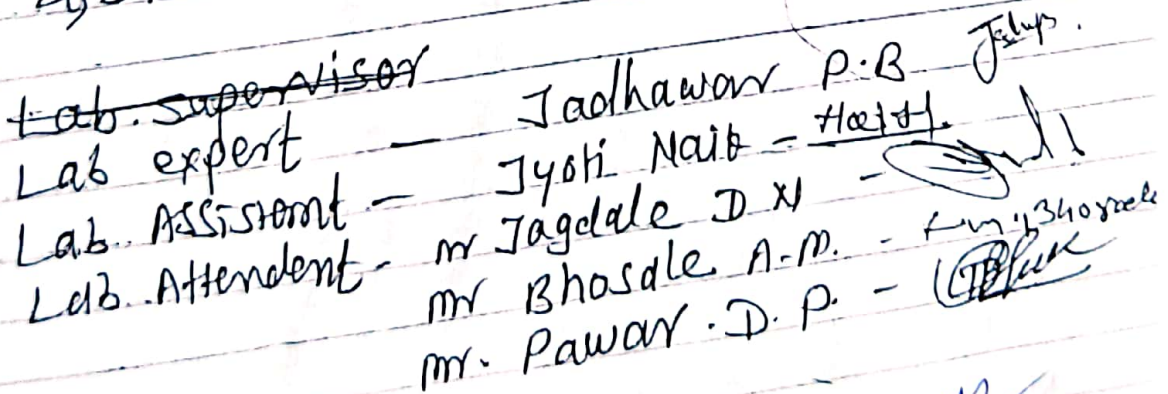 Lab. supervisor
Lab expert — Jadhawar P.B
Lab. Assistemt — Jyoti Naik -
Lab. Attendent - mr Jagdale D N -
mr Bhosale A.M. -
mr. Pawar. D. P. -